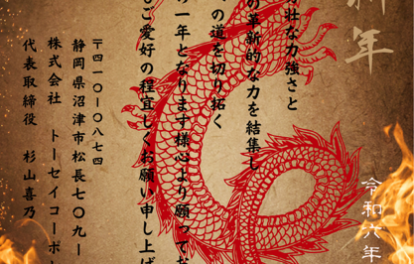 新年
令和六年
壮な力強さと
の革新的な力を結集し
の道を切り拓く
の一年となります様心より願ってお
もご愛好の程宜しくお願い申し上げ
〒四一〇ー〇八七四
静岡県沼津市松長七〇九ー
株式会社　トーセイコーポ
代表取締役　杉山喜乃